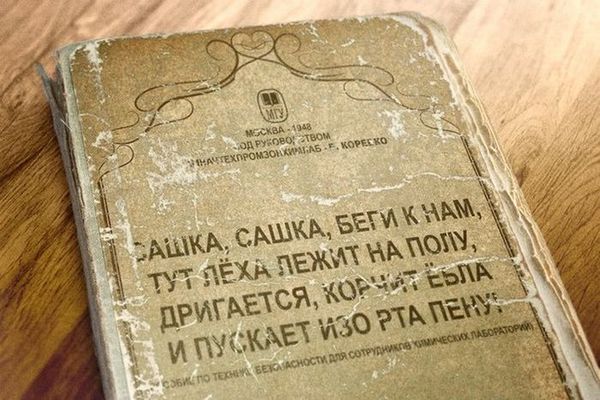 МГУ
МОСКВА - 1948
ПОД РУКОВОДСТВОМ
САШКА, САШКА, БЕГИ К НАМ,
ТУТ ЛЁХА ЛЕЖИТ НА ПОЛУ,
ДРИГАЕТСЯ, КОРЧИТ ЕБЛА
И ПУСКАЕТ ИЗО РТА ПЕНУ!
ПОСОБИЕ ПО ТЕХНИКЕ БЕЗОПАСНОСТИ ДЛЯ СОТРУДНИКОВ ХИМИЧЕСКИХ ЛАБОРАТОРИЙ)